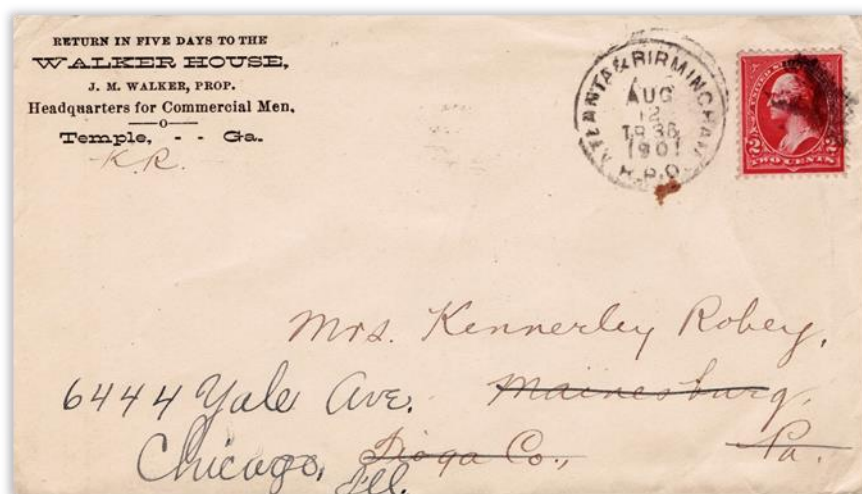 RETURN IN FIVE DAYS TO THE
WALKER HOUSE,
J. M. WALKER, PROP.
Headquarters for Commercial Men.
—o—
Temple, - - Ga.
K.R.
ATLANTA & BIRMINGHAM
AUG
12
TR 36
1901
R.P.O.
2 TWO CENTS 2
Mrs. Kennerley Robey,
6444 Yale Ave. Mainesburg,
Chicago, Tioga Co., Pa.
Ill.